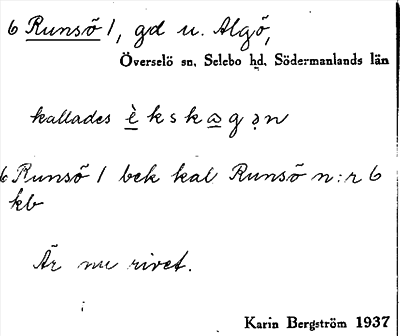 6 Runsö 1, gd u. Algö,
Överselö sn, Selebo hd, Södermanlands län
kallades è k s k a g ə n
6 Runsö 1 bek kal Runsö n:r 6
kb
Är nu rivet.
Karin Bergström 1937